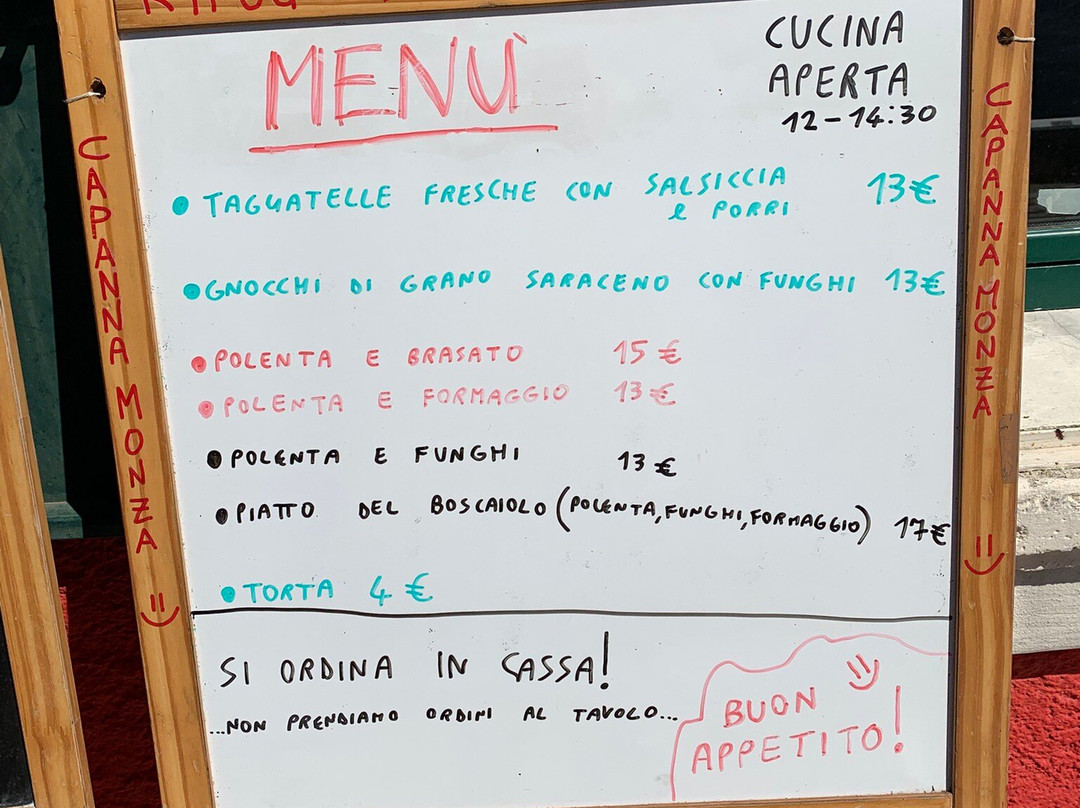 CUCINA
APERTA
12-14:30
MENÙ
• TAGLIATELLE FRESCHE CON SALSICCIA 13€
e PORRI
• GNOCCHI DI GRANO SARACENO CON FUNGHI 13€
• POLENTA E BRASATO 15€
• POLENTA E FORMAGGIO 13€
• POLENTA E FUNGHI 13€
• PIATTO DEL BOSCAIOLO (POLENTA, FUNGHI, FORMAGGIO) 17€
• TORTA 4€
SI ORDINA IN CASSA!
...NON PRENDIAMO ORDINI AL TAVOLO...
BUON
APPETITO!
CAPANNA MONZA
CAPANNA MONZA